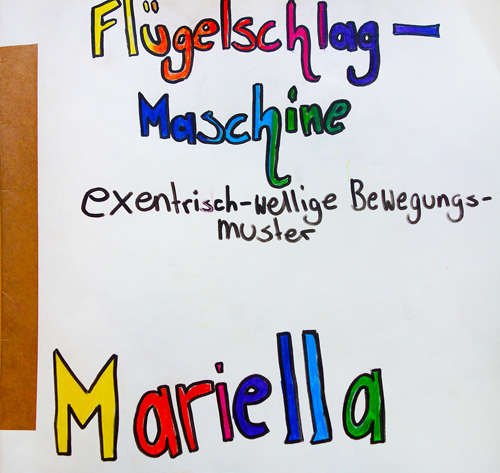 Flügelschlag-
Maschine
exentrisch-wellige Bewegungs-
muster
Mariella